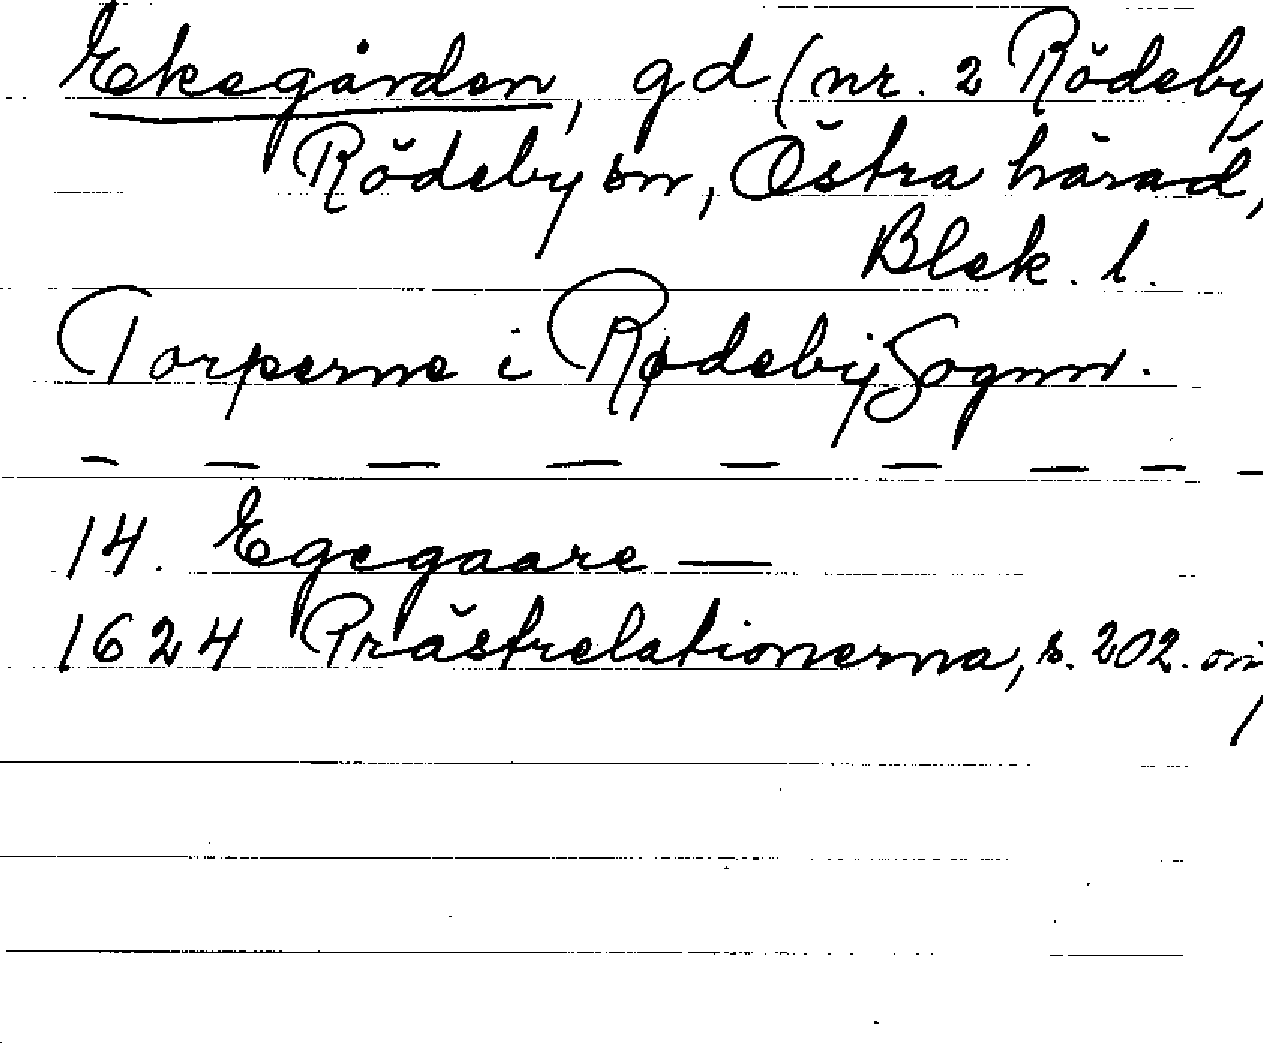 Ekegården, gd (nr. 2 Rödeby
Rödeby sn, Östra härad,
Blek. l.
Torperne i Rødeby Sognn.
— — — — — — — — —
14. Egegaare —
1624 Prästrelationerna, s. 202.